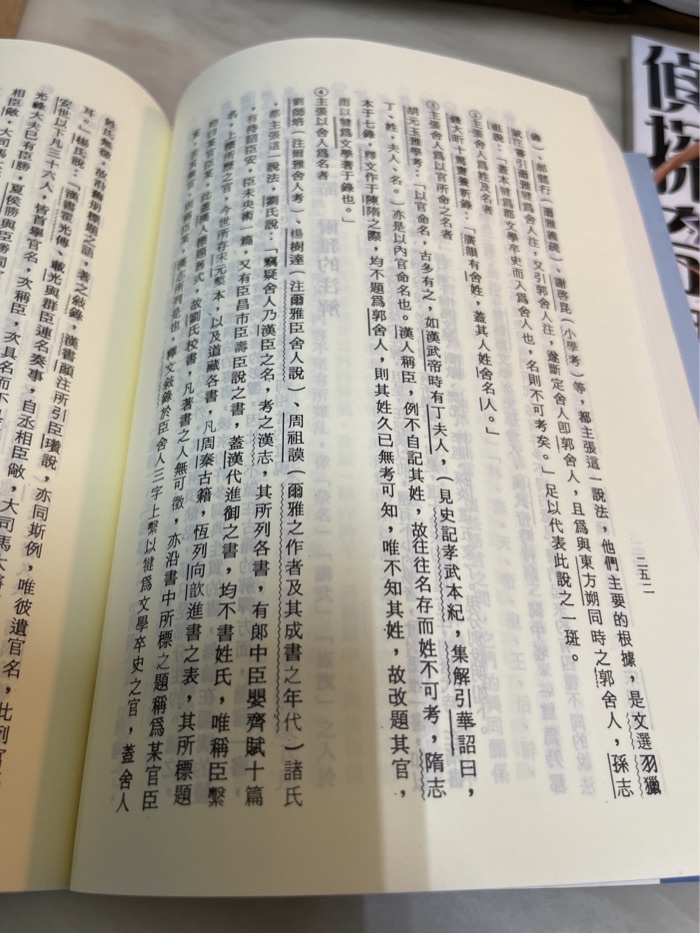 二五二
錄）、郝懿行（爾雅義疏）、謝啓昆（小學考）等，都主張這一說法，他們主要的根據，是文選羽獵
賦注書引爾雅犍爲舍人注，又引郭舍人注，遂斷定舍人即郭舍人，且爲與東方朔同時之郭舍人，孫志
祖說：「蓋本犍爲郡文學卒史而入爲舍人也，名則不可考矣。」足以代表此說之一斑。
②主張舍人爲姓及名者
錢大昕十駕齋養新錄：「廣韻有舍姓，蓋其人姓舍名人。」
③主張舍人爲以官所命之名者
胡元玉雅學考：「以官命名，古多有之，如漢武帝時有丁夫人，（見史記孝武本紀，集解引韋昭曰，
丁、姓，夫人、名。）亦是以內官命名也。漢人稱臣，例不自記其姓，故往往名存而姓不可考，隋志
本于七錄，釋文作于陳隋之際，均不題爲郭舍人，則其姓久已無考可知，唯不知其姓，故改題其官，
而以犍爲文學著于錄也。」
④主張以舍人爲名者
劉師培（注爾雅舍人考）、楊樹達（注爾雅臣舍人說）、周祖謨（爾雅之作者及其成書之年代）諸氏
，都主張這一說法，劉氏說：「竊疑舍人乃漢臣之名，考之漢志，其所列各書，有郎中臣嬰齊賦十篇
，有待詔臣安，臣未央術一篇，又有臣昌市臣壽臣說之書，蓋漢代進御之書，均不書姓氏，唯稱臣繫
名，上標所歷之官，今世所存宋元槧本，以及道藏各書，凡周秦古籍，恆列向歆進書之表，其所標題
均曰某官臣某，此卽漢人標題舊式，故劉氏校書，凡著書之人無可徵，亦沿書中所標之題稱爲某官臣
某，或某官，漢志所列是也，釋文敘錄於臣舍人三字上繫以犍爲文學卒史之官，蓋舍人
姓氏無徵，故沿舊朔標題之語，著之敍錄，漢書顏注所引臣瓚說，亦同斯例，唯彼遺官名，此列官
耳。」楊氏說：「漢書霍光傳、載光與群臣連名奏事，自丞相臣敞，大司馬大將
安世以下凡三十六人，皆首舉官名，次稱臣，次具名而不
光祿大夫已有臣勝，夏侯勝與臣勝同
相臣敞，大司馬大